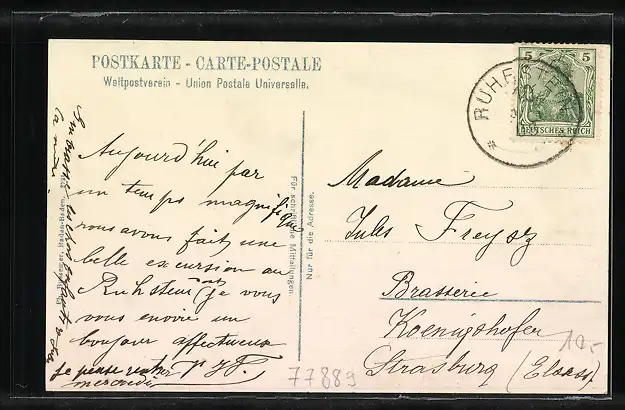 POSTKARTE - CARTE-POSTALE
Weltpostverein - Union Postale Universelle.
Aujourd'hui par
un temps magnifique
nous avons fait une
belle excursion au
Ruhstein d'où je vous
vous envoie un
bonjour affectueux
je pense rentrer
mercredi
Für schriftliche Mitteilungen.
Nur für die Adresse.
5 5
DEUTSCHES REICH
RUHESTEIN
Madame
Jules Freysz
Brasserie
Koenigshofen
Strasburg (Elsass)
10.-
77889